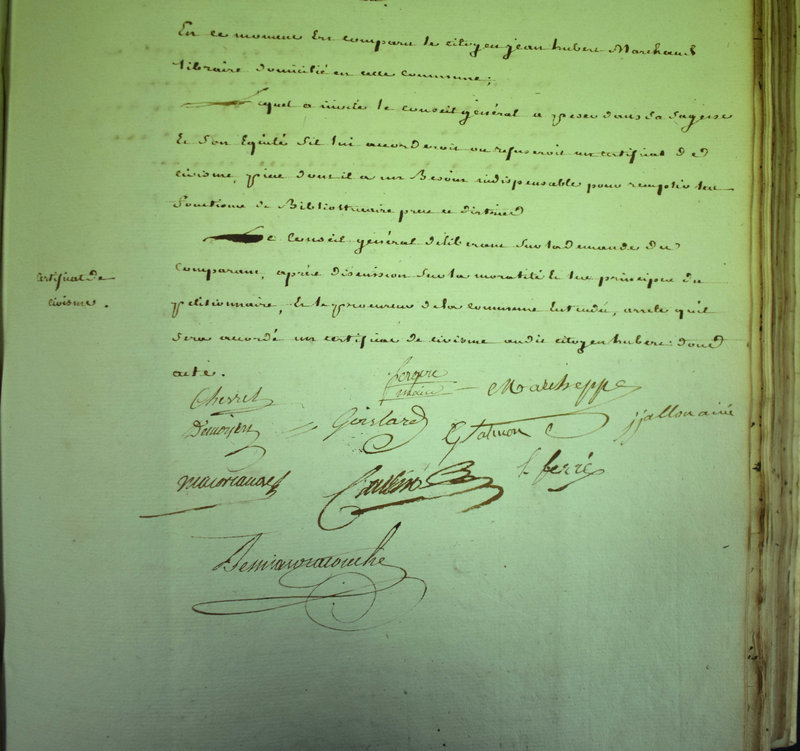 En ce moment Est comparu le citoyen jean hubert Marchand
libraire domicilié en cette commune;
Lequel a invité le conseil général a peser dans sa sagesse
Et son Equité s'il lui accorderoit ou refuseroit un certificat de
civisme, piece dont il a un Besoin indispensable pour remplir les
fonctions de Bibliothécaire pres ce district
Le Conseil général délibérant sur la demande du
Comparant, après discussion sur la moralité & les principes du
petitionnaire, Et le procureur de la commune Entendu, arrete qu'il
sera accordé un certificat de civisme audit citoyen hubert. dont
acte.
certificat de
civisme.
Chevret
maire
Marcheppe
Demoyen
Goislard
Talmon
jjallonainé
L ferré